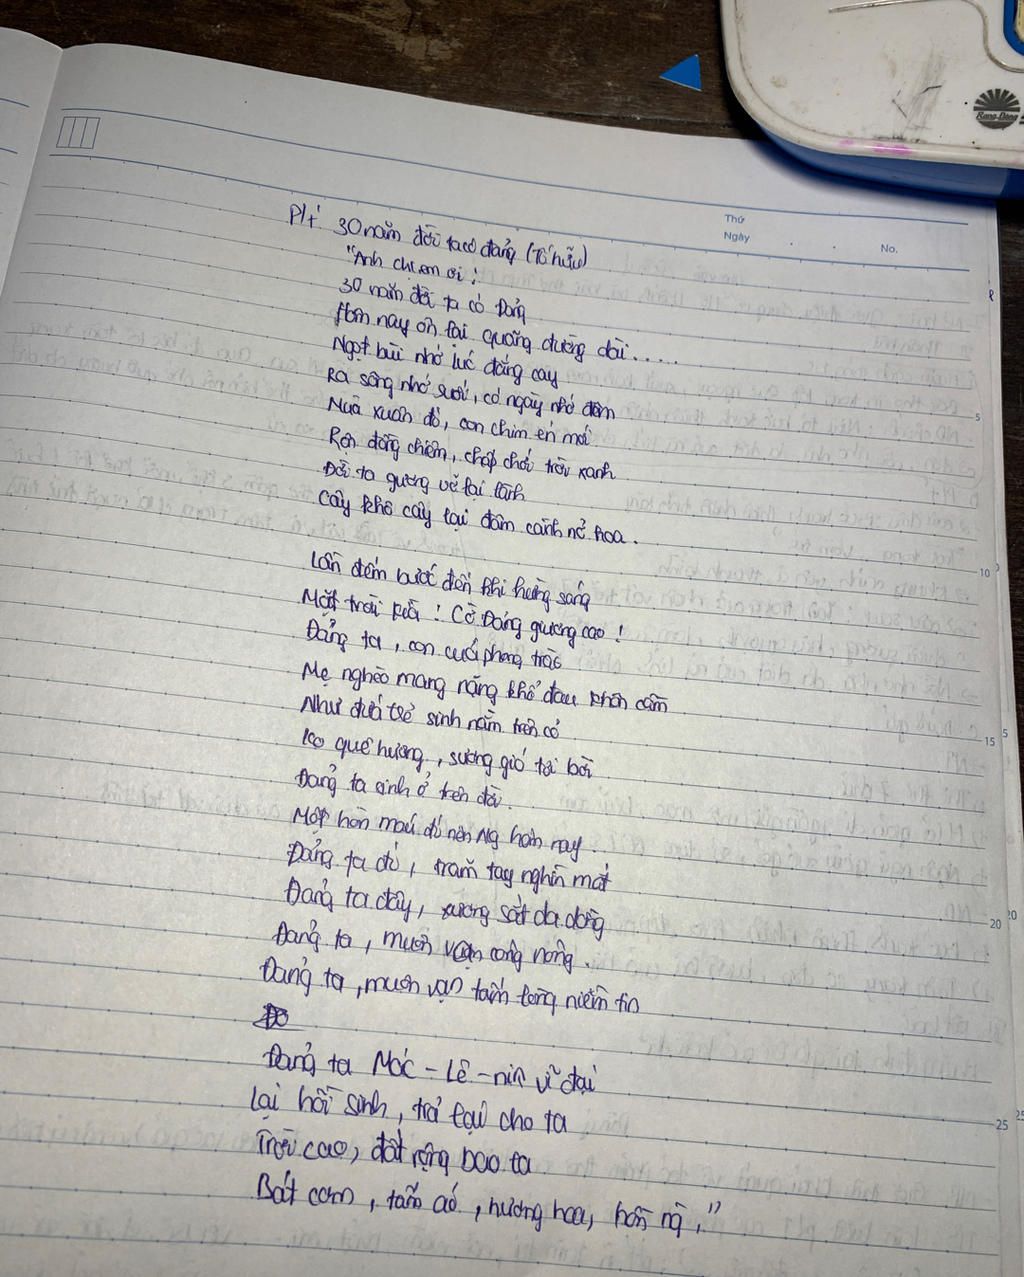 Rạng Đông
Thứ
Ngày
No.
P/t 30 năm đời ta có đảng (Tố hữu)
"Anh chị em ơi!
30 năm đời ta có Đảng
Hôm nay ôn lại quãng đường dài.....
Ngọt bùi nhớ lúc đắng cay
Ra sông nhớ suối, có ngày nhớ đêm
Mùa xuân đó, con chim én mới
Rộn đồng chiêm, chấp chới trời xanh
Đời ta gương vỡ lại lành
Cây khô cây lại đâm cành nở hoa.
5
Lần đêm bước đến khi hửng sáng
Mặt trời kia! Cờ Đảng giương cao!
10
Đảng ta, con của phong trào
Mẹ nghèo mang nặng khổ đau khôn cầm
Như đứa trẻ sinh nằm trên cỏ
quê hương, sương gió tơi bời
15
Đảng ta sinh ở trên đời.
Một hòn máu đỏ nên ng hôm nay.
Đảng ta đó, trăm tay nghìn mắt
Đảng ta đây, xương sắt da đồng
Đảng ta, muôn vạn công nông.
20
Đảng ta, muôn vạn tấm lòng niềm tin
Đảng ta Mác - Lê - nin vĩ đại
Lại hồi sinh, trả lại cho ta
25
Trời cao, đất rộng bao la
Bát cơm, tấm áo, hương hoa, hồn ng."